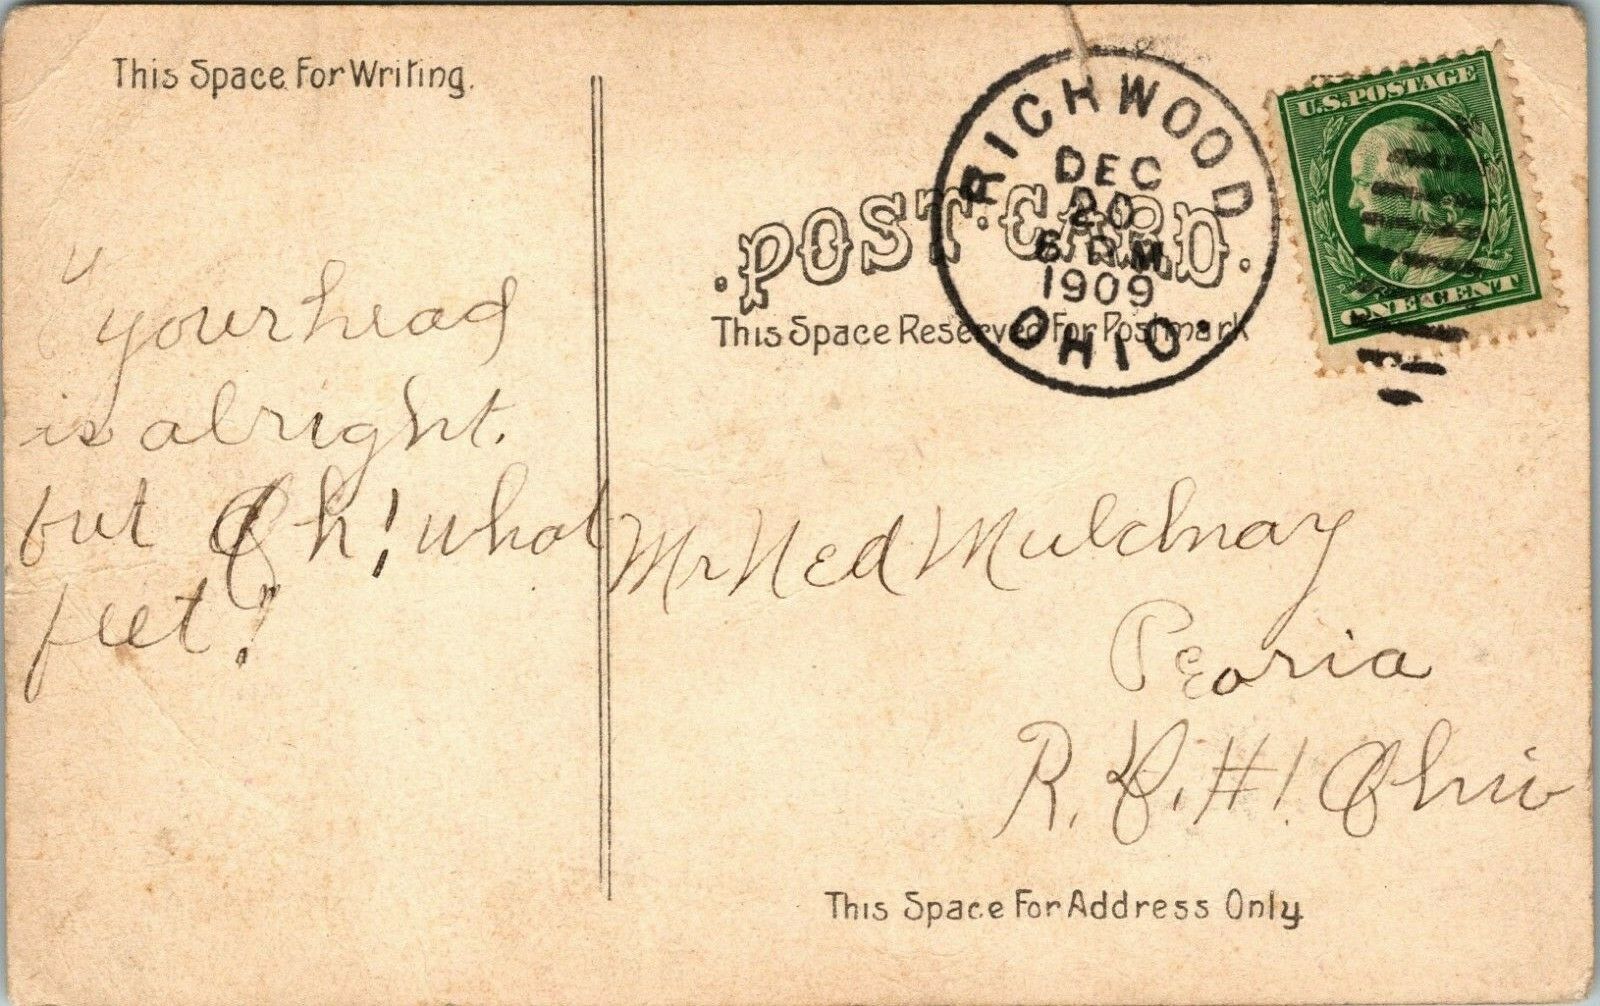 This Space For Writing.
"
your head
is alright.
but Oh! what
feet!
.POST.CARD.
This Space Reserved For Postmark
RICHWOOD
DEC
20
6 P.M.
1909
OHIO.
U.S. POSTAGE
ONE CENT
Mr Ned Mulchnay
Peoria
R. F. #1 Ohio
This Space For Address Only